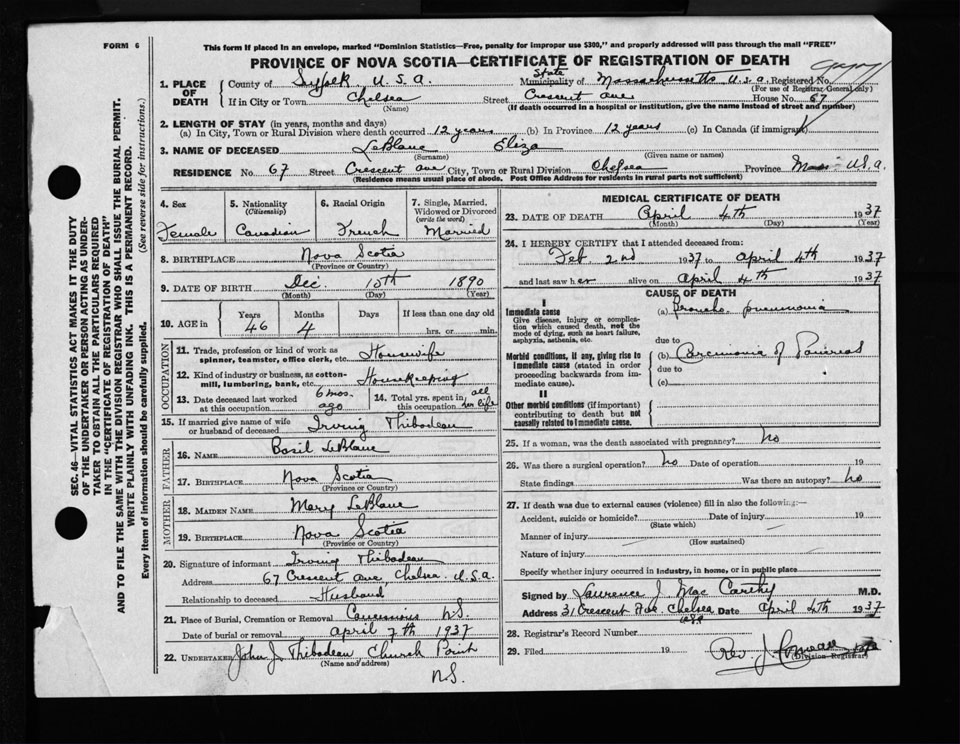 FORM 6
This form if placed in an envelope, marked "Dominion Statistics—Free, penalty for improper use $300," and properly addressed will pass through the mail "FREE"
PROVINCE OF NOVA SCOTIA—CERTIFICATE OF REGISTRATION OF DEATH
1. PLACE OF DEATH
County of U.S.A. State Municipality of Massachusetts U.S.A. Registered No.
(For use of Registrar-General only)
If in City or Town Chelsea Street Crescent Ave House No. 67
(Name) (If death occurred in a hospital or institution, give the name instead of street and number)
2. LENGTH OF STAY (in years, months and days)
(a) In City, Town or Rural Division where death occurred 12 years (b) In Province 12 years (c) In Canada (if immigrant)
3. NAME OF DECEASED LeBlanc Eliza
(Surname) (Given name or names)
RESIDENCE No. 67 Street Crescent Ave City, Town or Rural Division Chelsea Province Mass U.S.A.
(Residence means usual place of abode. Post Office Address for residents in rural parts not sufficient)
4. Sex Female
5. Nationality (Citizenship) Canadian
6. Racial Origin French
7. Single, Married, Widowed or Divorced (write the word) Married
8. BIRTHPLACE Nova Scotia
(Province or Country)
9. DATE OF BIRTH Dec. 1890
(Month) (Day) (Year)
10. AGE in Years 46 Months 4 Days If less than one day old hrs. or min.
OCCUPATION
11. Trade, profession or kind of work as spinner, teamster, office clerk, etc. Housewife
12. Kind of industry or business, as cotton-mill, lumbering, bank, etc. Housekeeping
13. Date deceased last worked at this occupation 6 mos. ago
14. Total yrs. spent in this occupation all her life
15. If married give name of wife or husband of deceased Irving Thibodeau
FATHER
16. NAME Basil LeBlanc
17. BIRTHPLACE Nova Scotia
(Province or Country)
MOTHER
18. MAIDEN NAME Mary LeBlanc
19. BIRTHPLACE Nova Scotia
(Province or Country)
20. Signature of informant Irving Thibodeau
Address 67 Crescent Ave, Chelsea, U.S.A.
Relationship to deceased Husband
21. Place of Burial, Cremation or Removal N.S.
Date of burial or removal April 7th 1937
22. UNDERTAKER John J. Thibodeau Church Point
(Name and address)
N.S.
MEDICAL CERTIFICATE OF DEATH
23. DATE OF DEATH April 4th 1937
(Month) (Day) (Year)
24. I HEREBY CERTIFY that I attended deceased from:
Feb. 2nd 1937 to April 4th 1937
and last saw her alive on April 4th 1937
CAUSE OF DEATH
I
Immediate cause
Give disease, injury or complication which caused death, not the mode of dying, such as heart failure, asphyxia, asthenia, etc.
(a) Broncho. pneumonia
due to
Morbid conditions, if any, giving rise to immediate cause (stated in order proceeding backwards from immediate cause).
(b) Carcinoma of Pancreas
due to
(c)
II
Other morbid conditions (if important) contributing to death but not causally related to immediate cause.
25. If a woman, was the death associated with pregnancy? No
26. Was there a surgical operation? No Date of operation 19
State findings Was there an autopsy? No
27. If death was due to external causes (violence) fill in also the following:—
Accident, suicide or homicide? Date of injury 19
(State which)
Manner of injury
(How sustained)
Nature of injury
Specify whether injury occurred in industry, in home, or in public place
Signed by Lawrence J. MacCarthy M.D.
Address 31 Crescent Ave. Chelsea Date April 4th 1937
28. Registrar's Record Number
29. Filed 19 Rev. J. Comeau
(Division Registrar)
SEC. 46—VITAL STATISTICS ACT MAKES IT THE DUTY
OF THE UNDERTAKER OR PERSON ACTING AS UNDER-
TAKER TO OBTAIN ALL THE PARTICULARS REQUIRED
IN THE "CERTIFICATE OF REGISTRATION OF DEATH"
AND TO FILE THE SAME WITH THE DIVISION REGISTRAR WHO SHALL ISSUE THE BURIAL PERMIT.
WRITE PLAINLY WITH UNFADING INK. THIS IS A PERMANENT RECORD.
Every item of information should be carefully supplied. (See reverse side for instructions.)